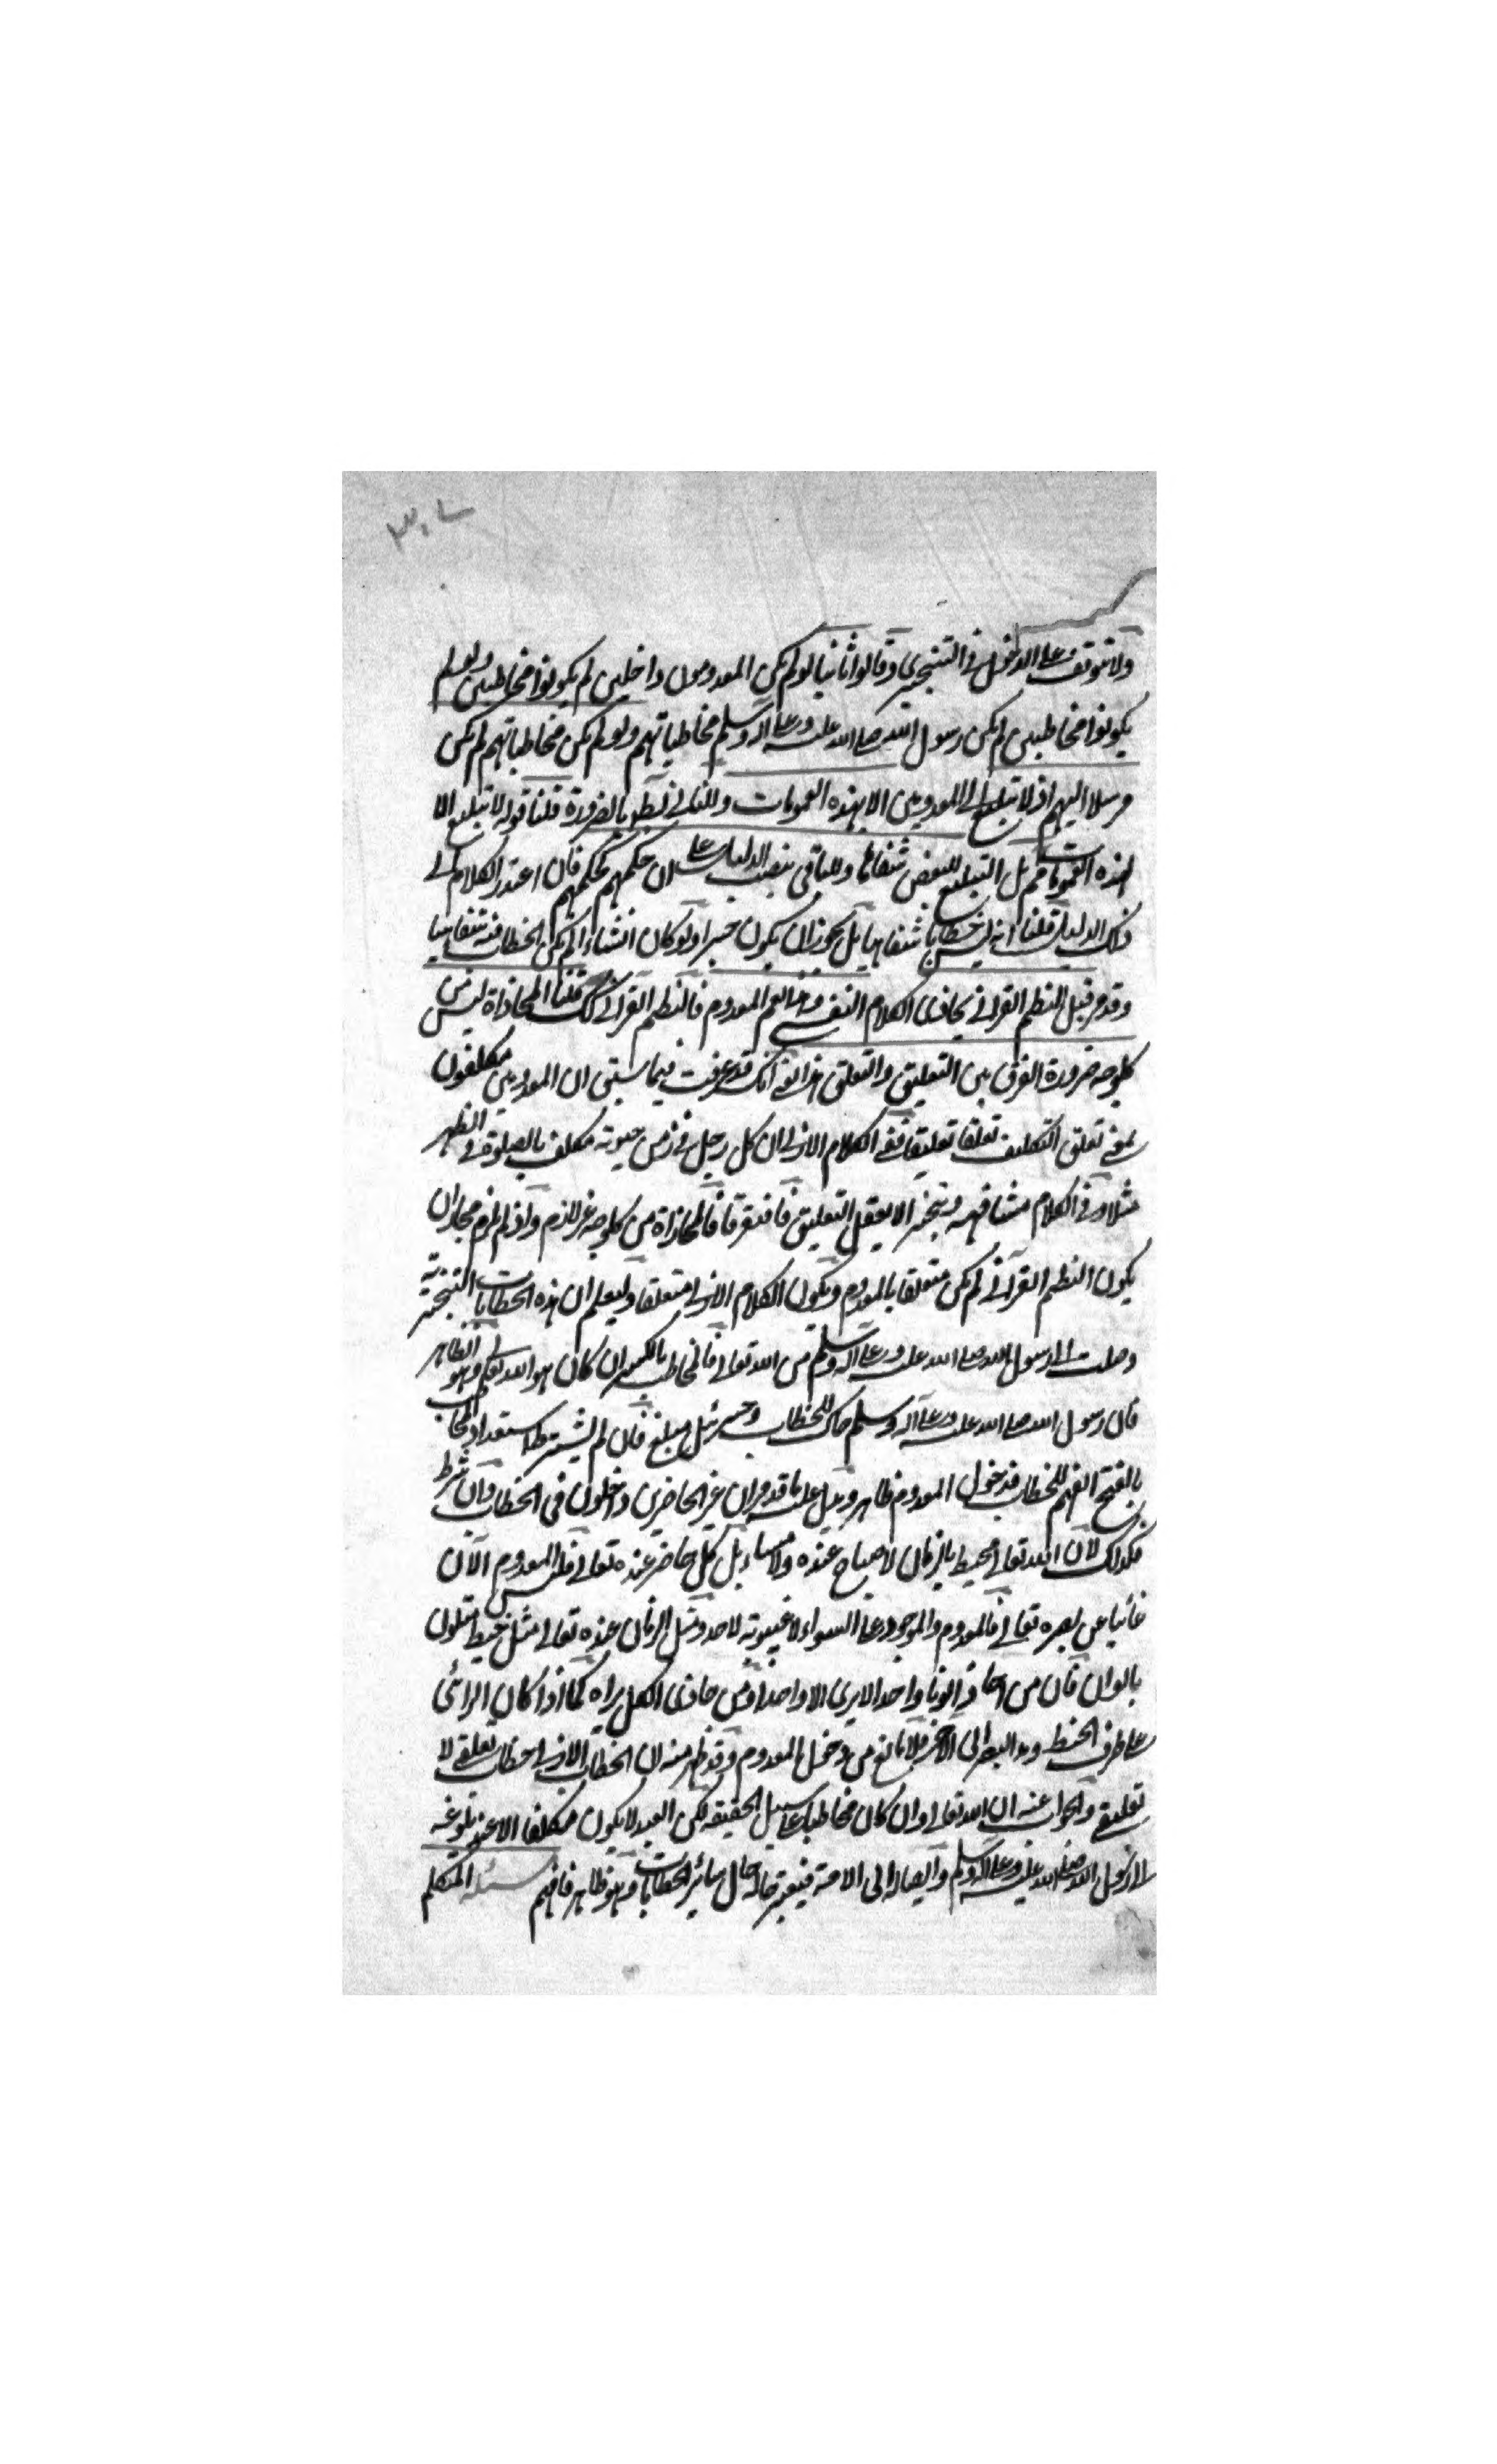 ٣٠٧
ولا توقف على الدخول في التنجيزي وقالوا ثانيا لو لم يكن المعدومون داخلين لم يكونوا مخاطبين ولو لم
يكونوا مخاطبين لم يكن رسول الله صلى الله عليه وعلى اله وسلم مخاطباتهم ولو لم يكن مخاطباتهم لم يكن
مرسلا اليهم اذ لا تبليغ الى المعدومين الا بهذه العمومات وللثاني بط بالضرورة قلنا قوله لا تبليغ الا
بهذه العمومات مم بل التبليغ للبعض شفاها وللباقي بنصب الدليل على ان حكمهم كحكمهم فان اعتذر الكلام في
ذلك الدليل قلنا انه ليس خطابا شفاهيا بل يجوز ان يكون خبرا ولو كان انشاء لم يكن الخطاب فيه شفاهيا
وقد مر قيل النظم القراني يحاذي الكلام النفسي وهذا يعم المعدوم فالنظم القراني كك قلنا المحاذاة ليس من
كل وجه ضرورة الفرق بين التعليق والتعلق هذا يعني انك قد عرفت فيما سبق ان المعدومين مكلفون
بمعنى تعلق التكليف تعلقا تعليقا ففي الكلام الازلي ان كل رجل في زمن حيوته مكلف بالصلوة في الظهر
مثلا وفي الكلام مشافهة وتنجيز لا يعقل التعليق فافترقا فالمحاذاة من كل وجه غير لازم واذ لم يلزم مجاز ان
يكون النظم القرآني لم يكن متعلقا بالمعدوم ويكون الكلام الازلي متعلقا وليعلم ان هذه الخطابات التنجيزية
وصلت الى رسول الله صلى الله عليه وعلى اله وسلم من الله تعالى فالمخاطب بالكسر ان كان هو الله تعالى وهو الظاهر
فان رسول الله صلى الله عليه وعلى آله وسلم حاك للخطاب وجبرئيل مبلغ فان لم يشترط استعداد المخاطب
بالفتح الفهم للخطاب فدخول المعدوم ظاهر ويدل عليه ما قد مر ان غير الحاضرين داخلون في الخطاب وان شرط
فكذلك لان الله تعالى محيط بالزمان لا صباح عنده ولا مساء بل كل حاضر عنده تعالى فليس المعدوم الآن
غائبا عن بصره تعالى فالمعدوم والموجود على السواء لا غيبوبة لاحد ومثل الزمان عنده تعالى مثل خيط متلون
بالوان فان من حاذى لونا واحدا لا يرى الا واحدا ومن حاذى الكل يراه كما اذا كان الرائي
على طرف الخيط ومد البصر الى الآخر فلا مانع من دخول المعدوم وقد ظهر منه ان الخطاب الازلي خطاب تعلقي لا
تعليقي والجواب عنه ان الله تعالى وان كان مخاطبا على سبيل الحقيقة لكن العبد لا يكون مكلفا الا عند بلوغه
الى رسول الله صلى الله عليه وعلى اله وسلم وايصاله الى الامة فيعتبر حاله حال سائر الخطابات وهو ظاهر فافهم مسئلة المتكلم